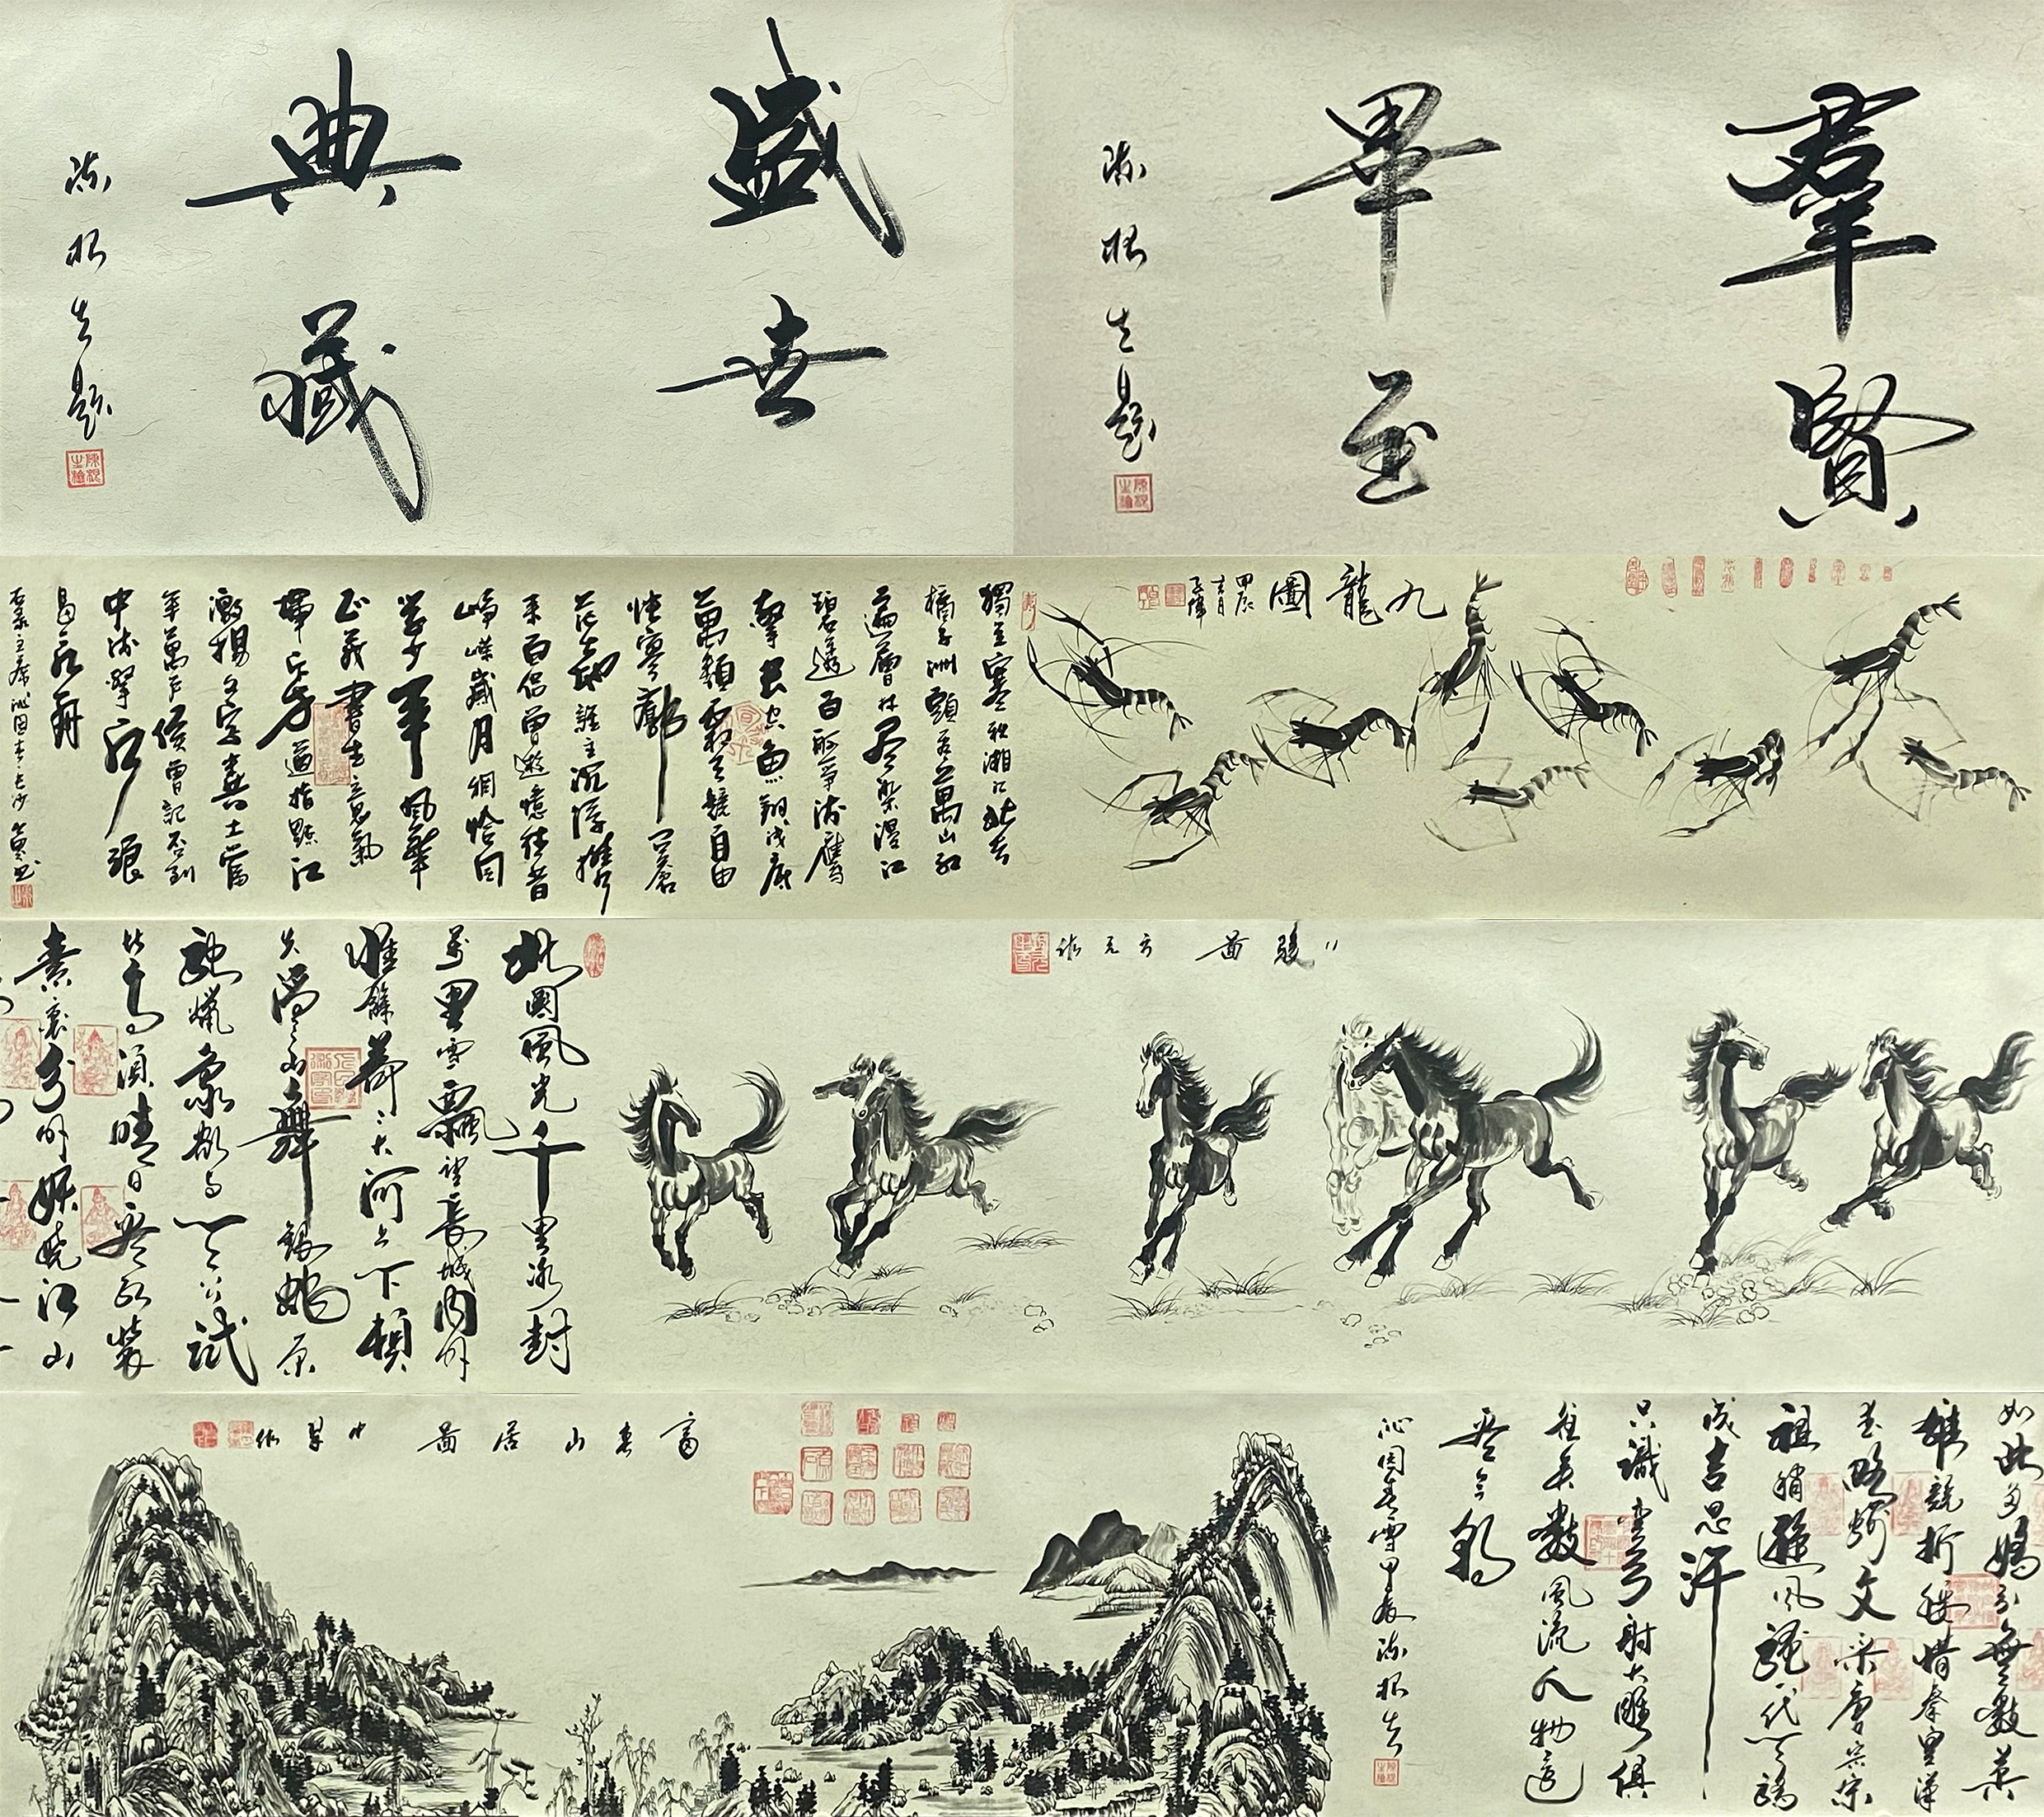 羣賢
畢至
陈根题
盛世
典藏
陈根题
九龍圖
甲辰
吉月
獨立寒秋湘江北去
橘子洲頭看萬山红
遍層林尽染漫江
碧透百舸爭流鷹
擊長空魚翔浅底
萬類霜天競自由
悵寥廓问蒼
茫大地誰主沉浮携
来百侣曾遊憶往昔
崢嶸歲月稠恰同
学少年風華
正茂書生意氣
揮斥方遒指點江
激揚文字糞土當
年萬户侯曾記否到
中流擊水浪
遏飛舟
右录主席沁园春长沙
八駿圖
作
北國風光千里冰封
萬里雪飄望長城内外
惟餘莽莽大河上下頓
失滔滔山舞銀蛇原
馳蠟象欲与天公试
比高須晴日看红裝
素裹分外妖嬈江山
如此多嬌引無數英
雄競折腰惜秦皇漢
武略输文采唐宗宋
祖稍遜風騷一代天驕
成吉思汗
只識彎弓射大雕俱
往矣數風流人物還
看今朝
沁园春雪甲辰陈根
富春山居圖
作